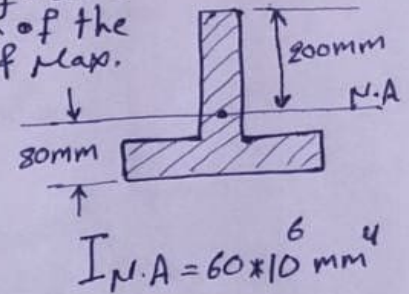 of the
f Max.
200mm
N.A
80mm
I N.A = 60*10⁶ mm⁴